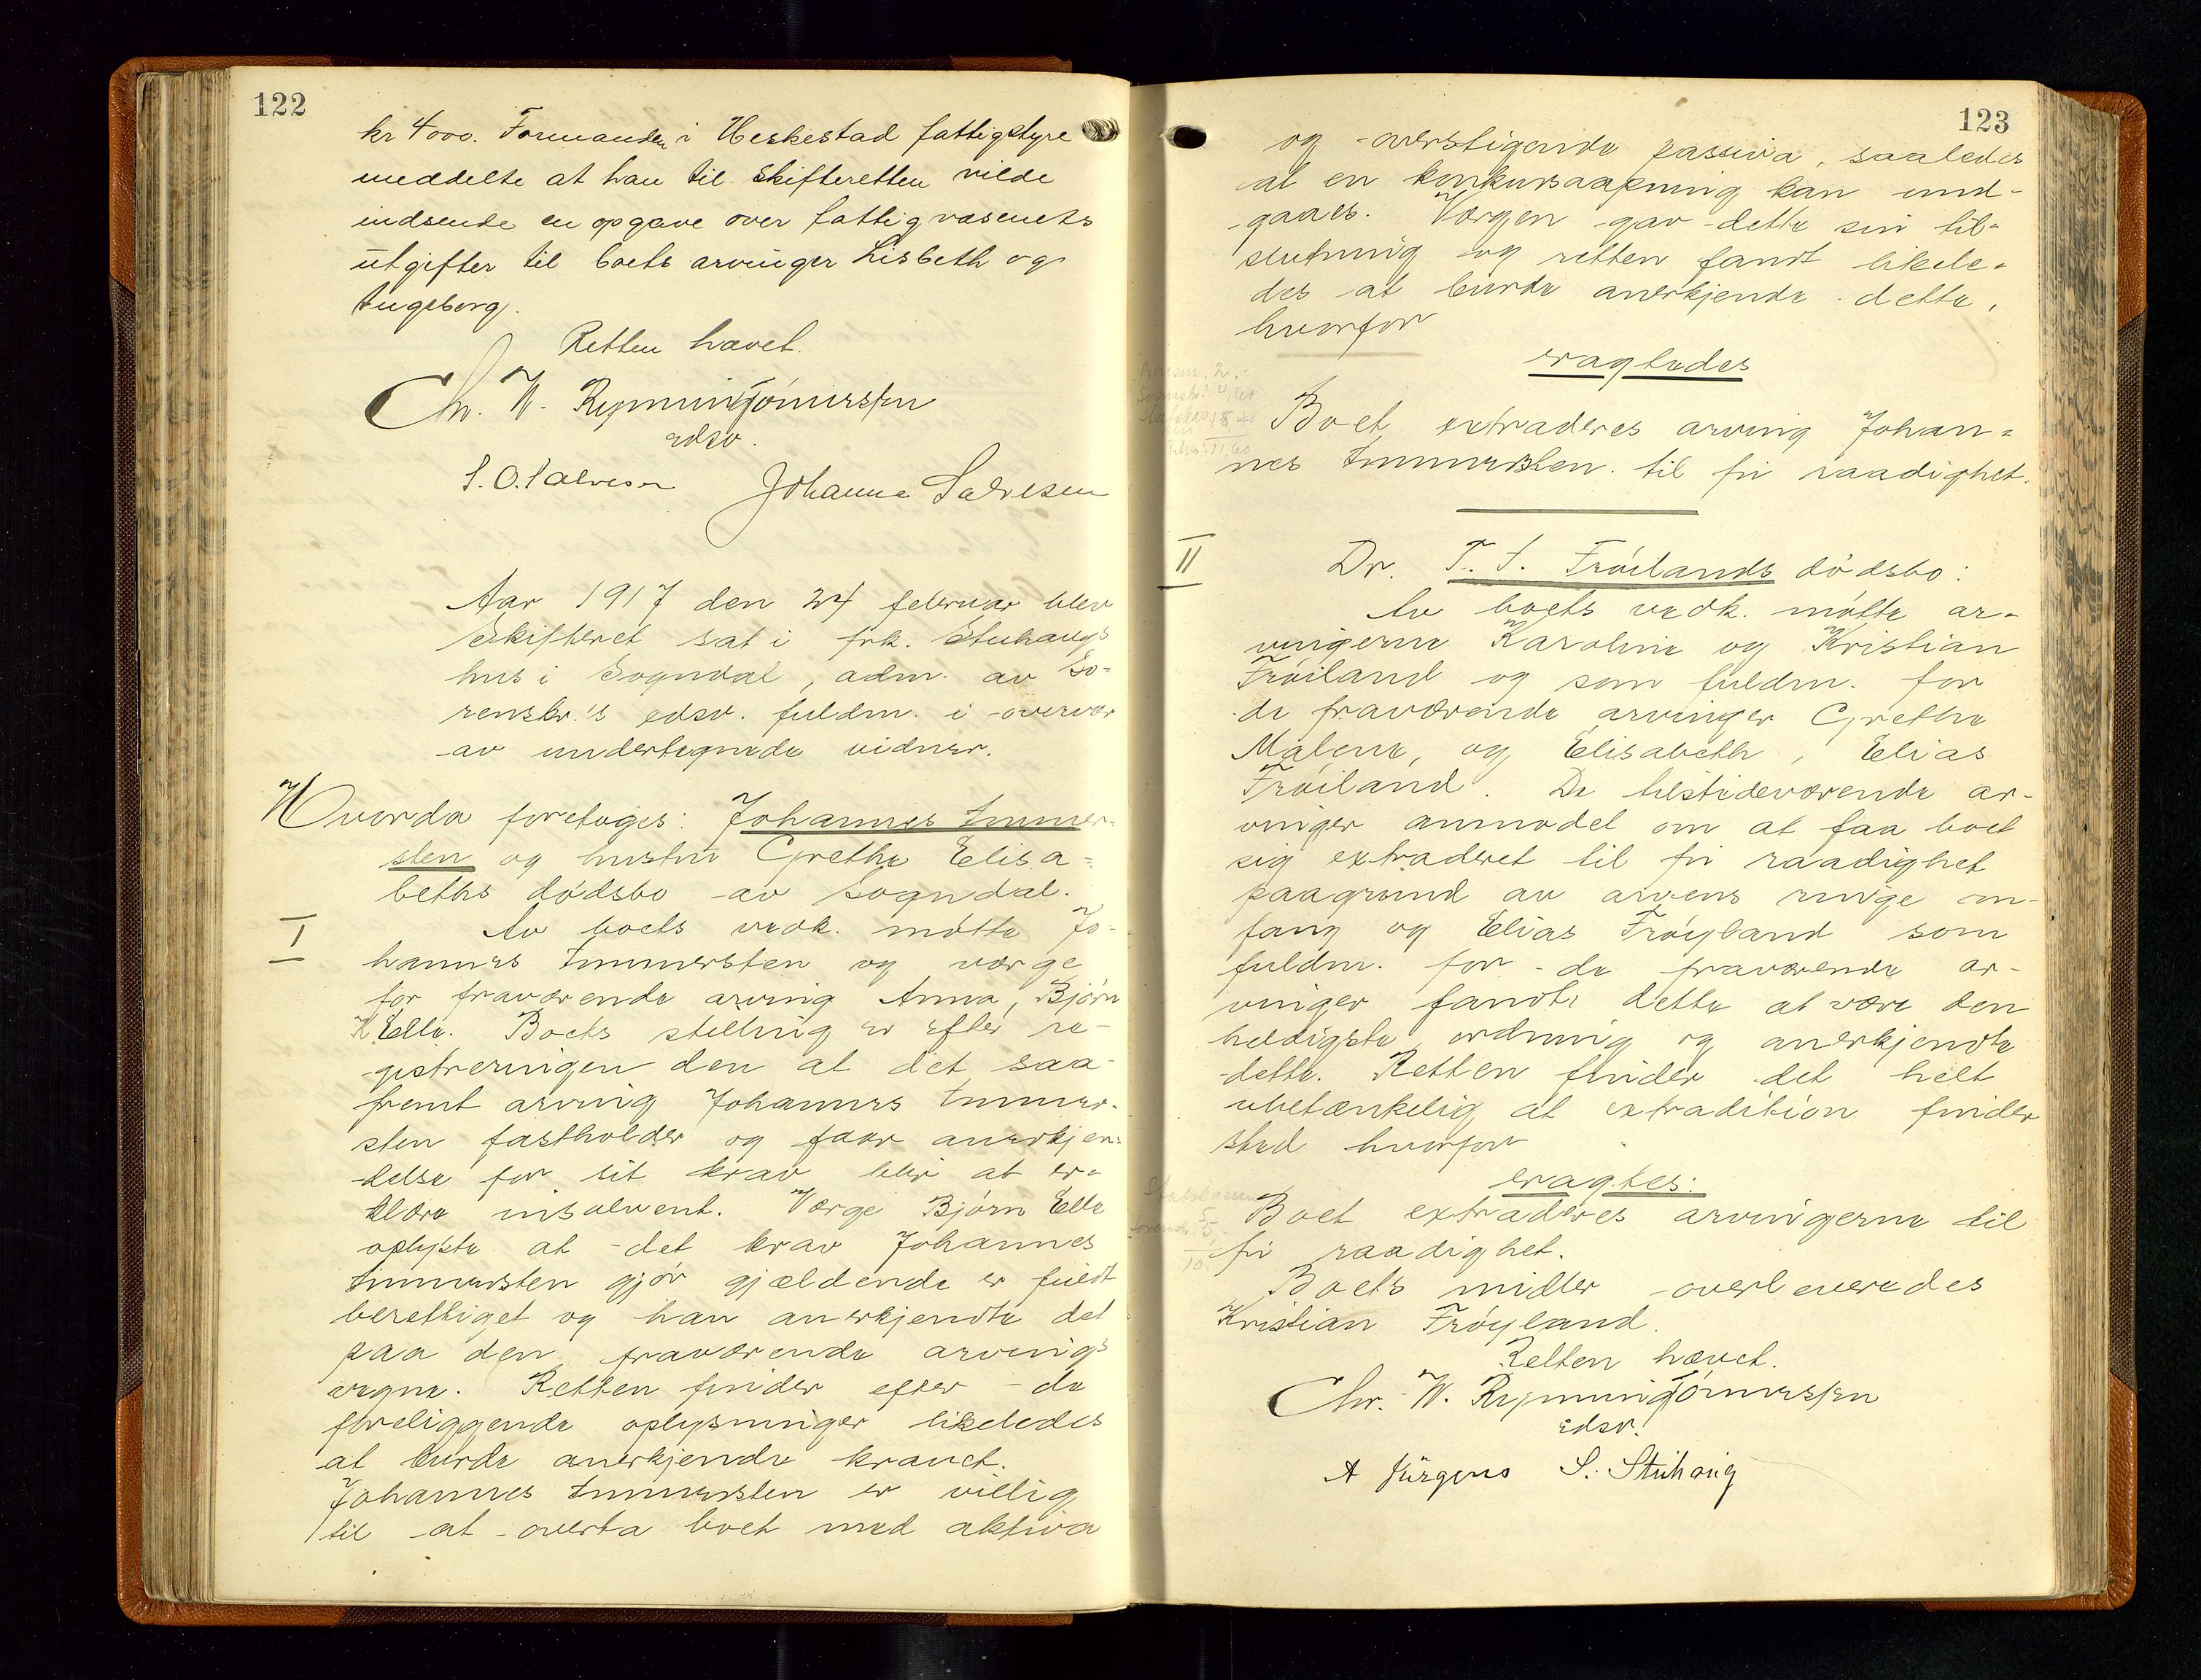 122
kr 4000. Formanden i Heskestad fattigstyre
meddelte at han til skifteretten vilde
indsende en opgave over fattigvæsenets
utgifter til boets arvinger Lisbeth og
Ingeborg.
Retten hævet.
Chr. W.
edsv.
S. O. Salvesen Johanne Salvesen
Aar 1917 den 24 februar blev
skifteret sat i frk. Stuhaugs
hus i Sogndal, adm. av So-
renskr.'s edsv. fuldm. i overvær
av undertegnede vidner.
Hvorda foretoges: Johannes Immer-
sten og hustru Grethe Elisa=
beths dødsbo av Sogndal.
I
Av boets vedk. møtte Jo-
hannes Immersten og værge
for fraværende arving Anna, Bjørn
K Elle. Boets stilling er efter re-
gistreringen den at det saa-
fremt arving Johannes Immer-
sten fastholder og faar anerkjen-
delse for sit krav blir at er-
klære insolvent. Værge Bjørn Elle
oplyste at det krav Johannes
Immersten gjør gjældende er fuldt
berettiget og han anerkjendte det
paa den fraværende arvings
vegne. Retten finder efter de
foreliggende oplysninger likeledes
at burde anerkjende kravet.
Johannes Immersten er villig
til at overta boet med aktiva
123
og overstigende passiva, saaledes
at en konkursaapning kan und-
gaaes. Værgen gav dette sin til-
slutning og retten fandt likele-
des at burde anerkjende dette,
hvorfor
eragtedes
Boet extraderes arving Johan=
nes Immersten til fri raadighet.
II
Dr. T. S. Frøilands dødsbo:
Av boets vedk. møtte ar-
vingerne Karoline og Kristian
Frøiland og som fuldm. for
de fraværende arvinger Grethe
Malene, og Elisabeth, Elias
Frøiland. De tilstedeværende ar-
vinger anmodet om at faa boet
sig extraderet til fri raadighet
paagrund av arvens ringe om-
fang og Elias Frøyland som
fuldm. for de fraværende ar-
vinger fandt dette at være den
heldigste ordning og anerkjendte
dette. Retten finder det helt
ubetænkelig at extradition finder
sted hvorfor
eragtes:
Boet extraderes arvingerne til
fri raadighet.
Boets midler overleveredes
Kristian Frøyland.
Retten hævet.
Chr. W.
edsv.
A Jürgens S. Stuhaug